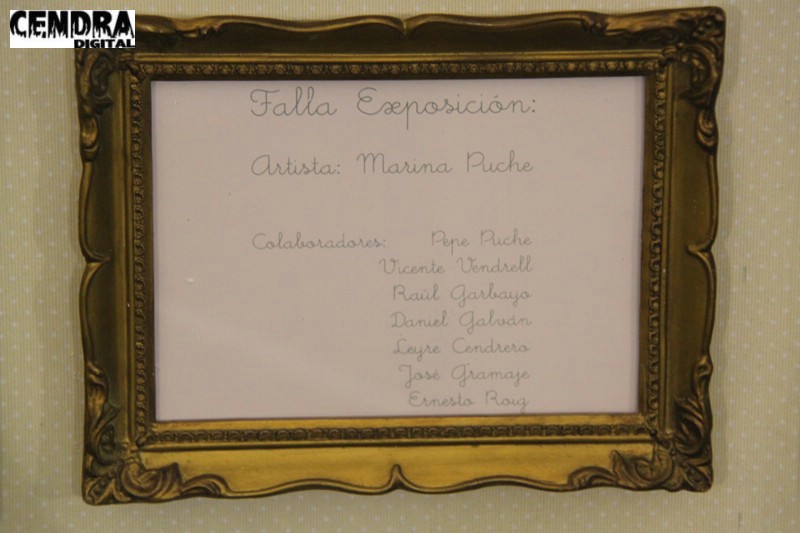 CENDRA
DIGITAL
Falla Exposición:
Artista: Marina Puche
Colaboradores: Pepe Puche
Vicente Vendrell
Raúl Garbayo
Daniel Galván
Leyre Cendrero
José Gramaje
Ernesto Roig